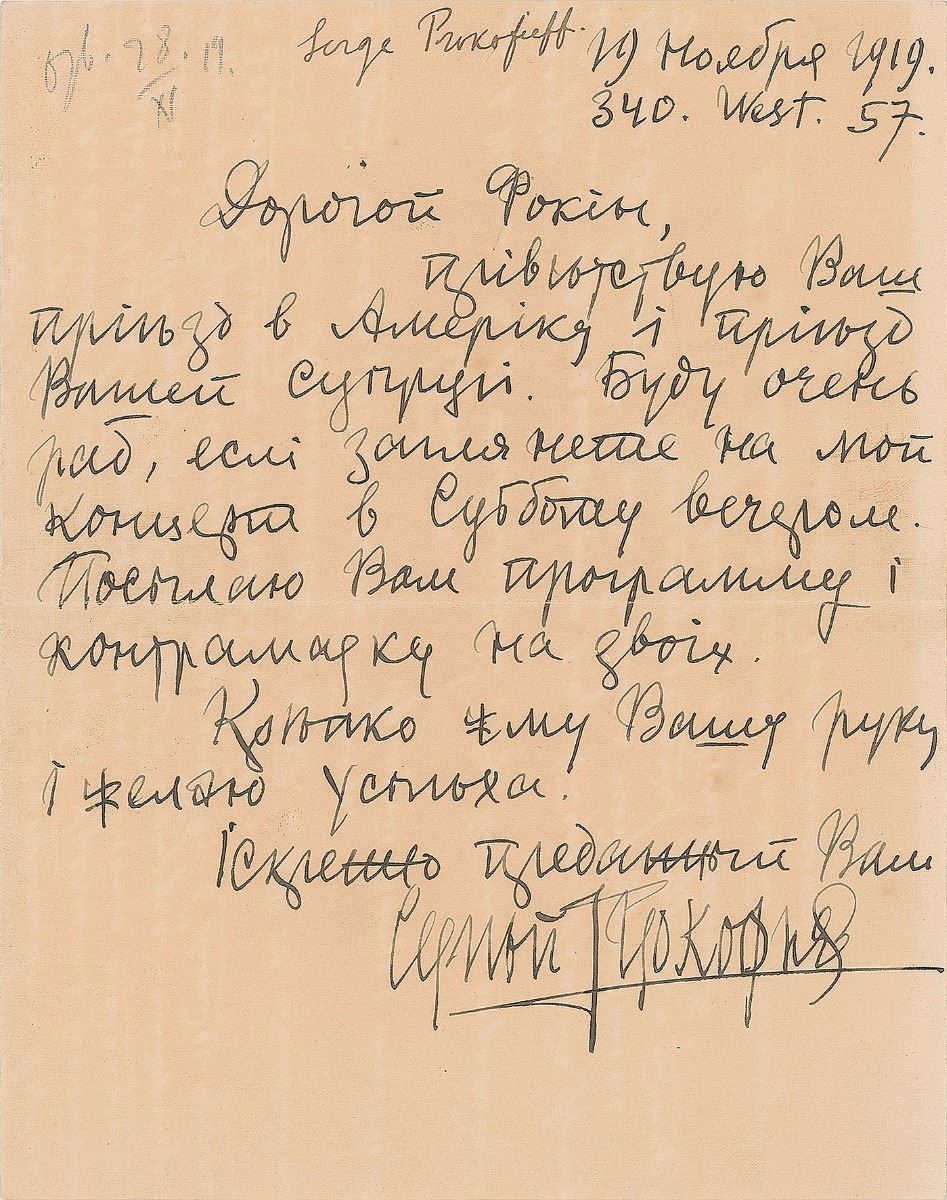 отв. 28 19.
XI
Serge Prokofieff.
19 ноября 1919.
340. West. 57.
Дорогой Фокін,
прівѣтствую Ваш
пріѣзд в Амеріку і пріѣзд
Вашей супругі. Буду очень
рад, еслі заглянете на мой
концерт в Субботу вечером.
Посылаю Вам программу і
контрамарку на двоіх.
Крѣпко жму Вашу руку
і желаю успѣха.
Іскренно преданный Вам
Сергѣй Прокофьев